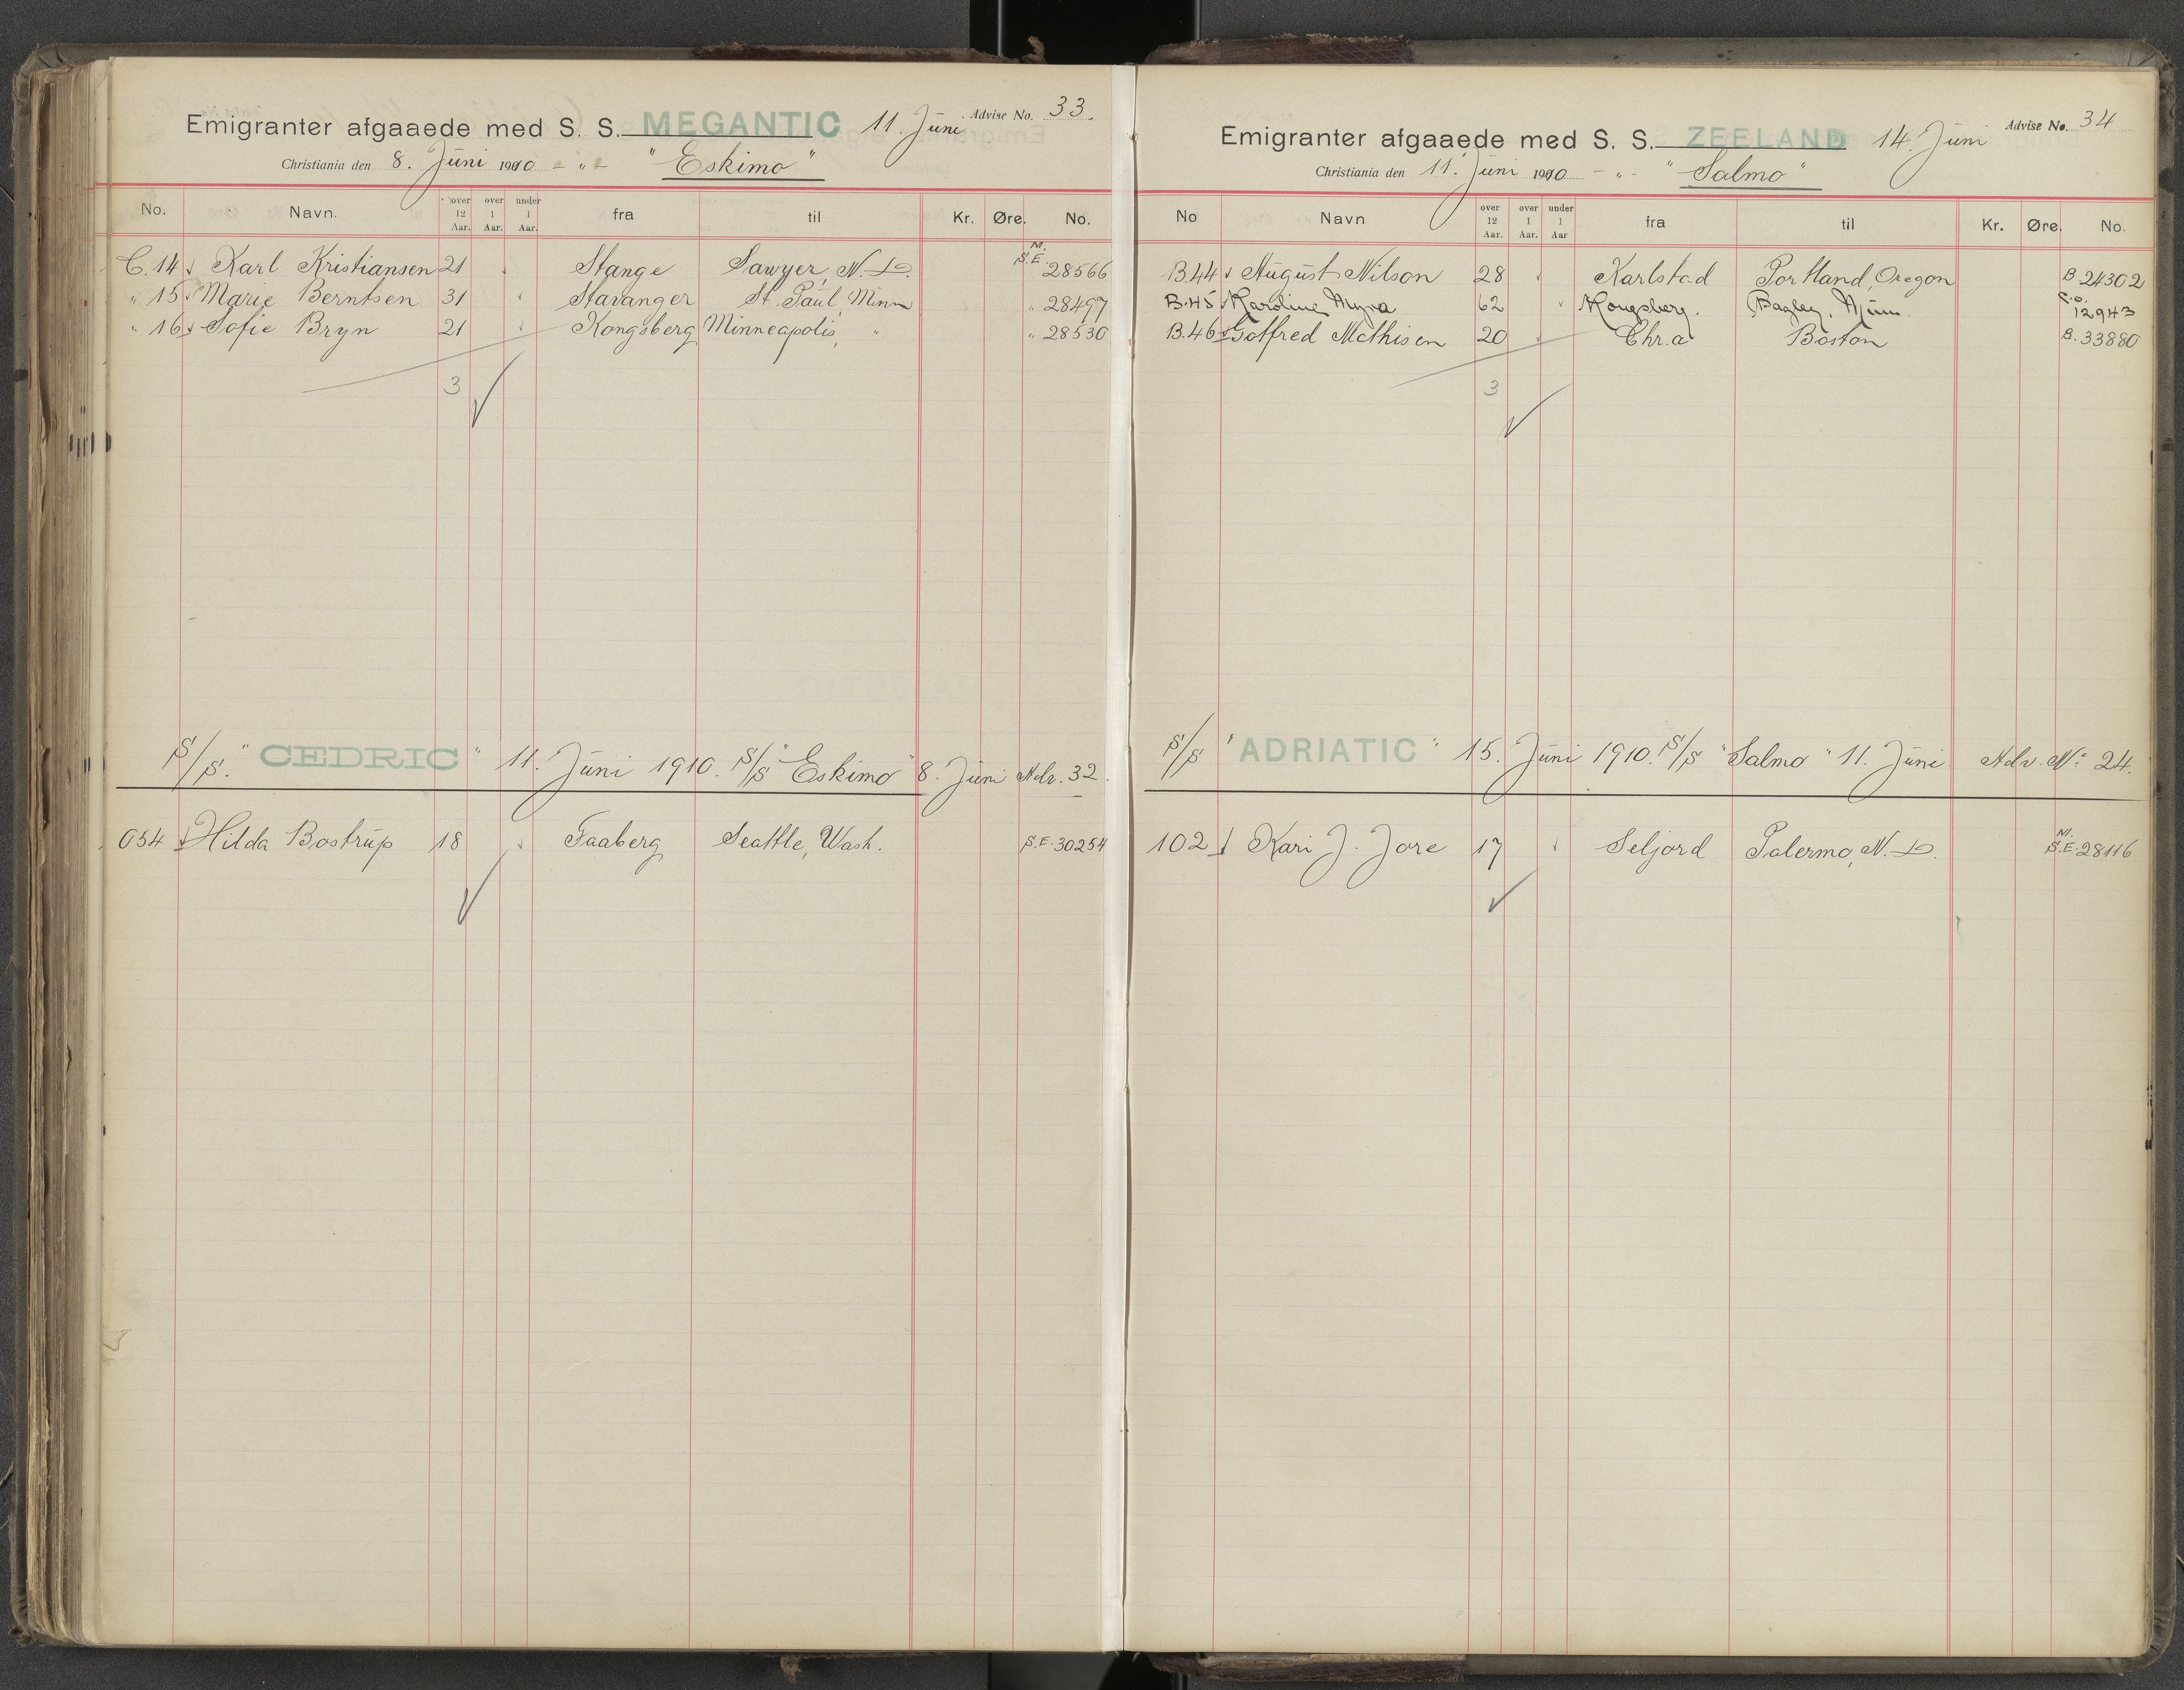 Emigranter afgaaede med S. S. MEGANTIC 11. Juni Advise No. 33.
Christiania den 8. Juni 1910 - " - "Eskimo"
No. Navn. over 12 Aar. over 1 Aar. under 1 Aar. fra til Kr. Øre. No.
C. 14 Karl Kristiansen 21 Stange Sawyer, N. D. M. S.E. 28566
" 15 Marie Berntsen 31 Stavanger St. Paul, Minn " 28497
" 16 Sofie Bryn 21 Kongsberg Minneapolis, " " 28530
3
S/S. "CEDRIC" 11. Juni 1910. S/S "Eskimo" 8. Juni Adv. 32.
054 Hilda Bostrup 18 Faaberg Seattle, Wash. S.E. 30254
Emigranter afgaaede med S. S. ZEELAND 14. Juni Advise No. 34
Christiania den 11. Juni 1910 - " - "Salmo"
No Navn over 12 Aar. over 1 Aar. under 1 Aar fra til Kr. Øre. No.
B.44 August Nilson 28 Karlstad Portland, Oregon B. 24302
B.45 Karoline Myra 62 Kongsberg. Bagley, Minn. 12943
B.46 Gotfred Mathisen 20 Chr.a Boston B. 33880
3
S/S "ADRIATIC" 15. Juni 1910. S/S "Salmo" 11. Juni Adv. No 24.
102 Kari J. Jore 17 Seljord Palermo, N. D. M. S.E. 28116